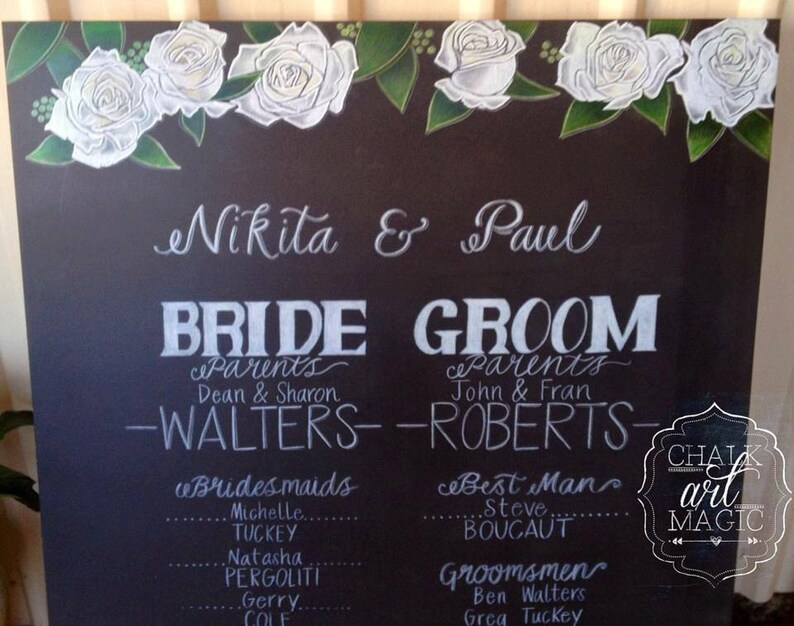 Nikita & Paul
BRIDE
Parents
Dean & Sharon
WALTERS
Bridesmaids
Michelle
TUCKEY
Natasha
PERGOLITI
Gerry
COLE
GROOM
Parents
John & Fran
ROBERTS
Best Man
Steve
BOUCAUT
Groomsmen
Ben Walters
Greg Tuckey
CHALK
art
MAGIC